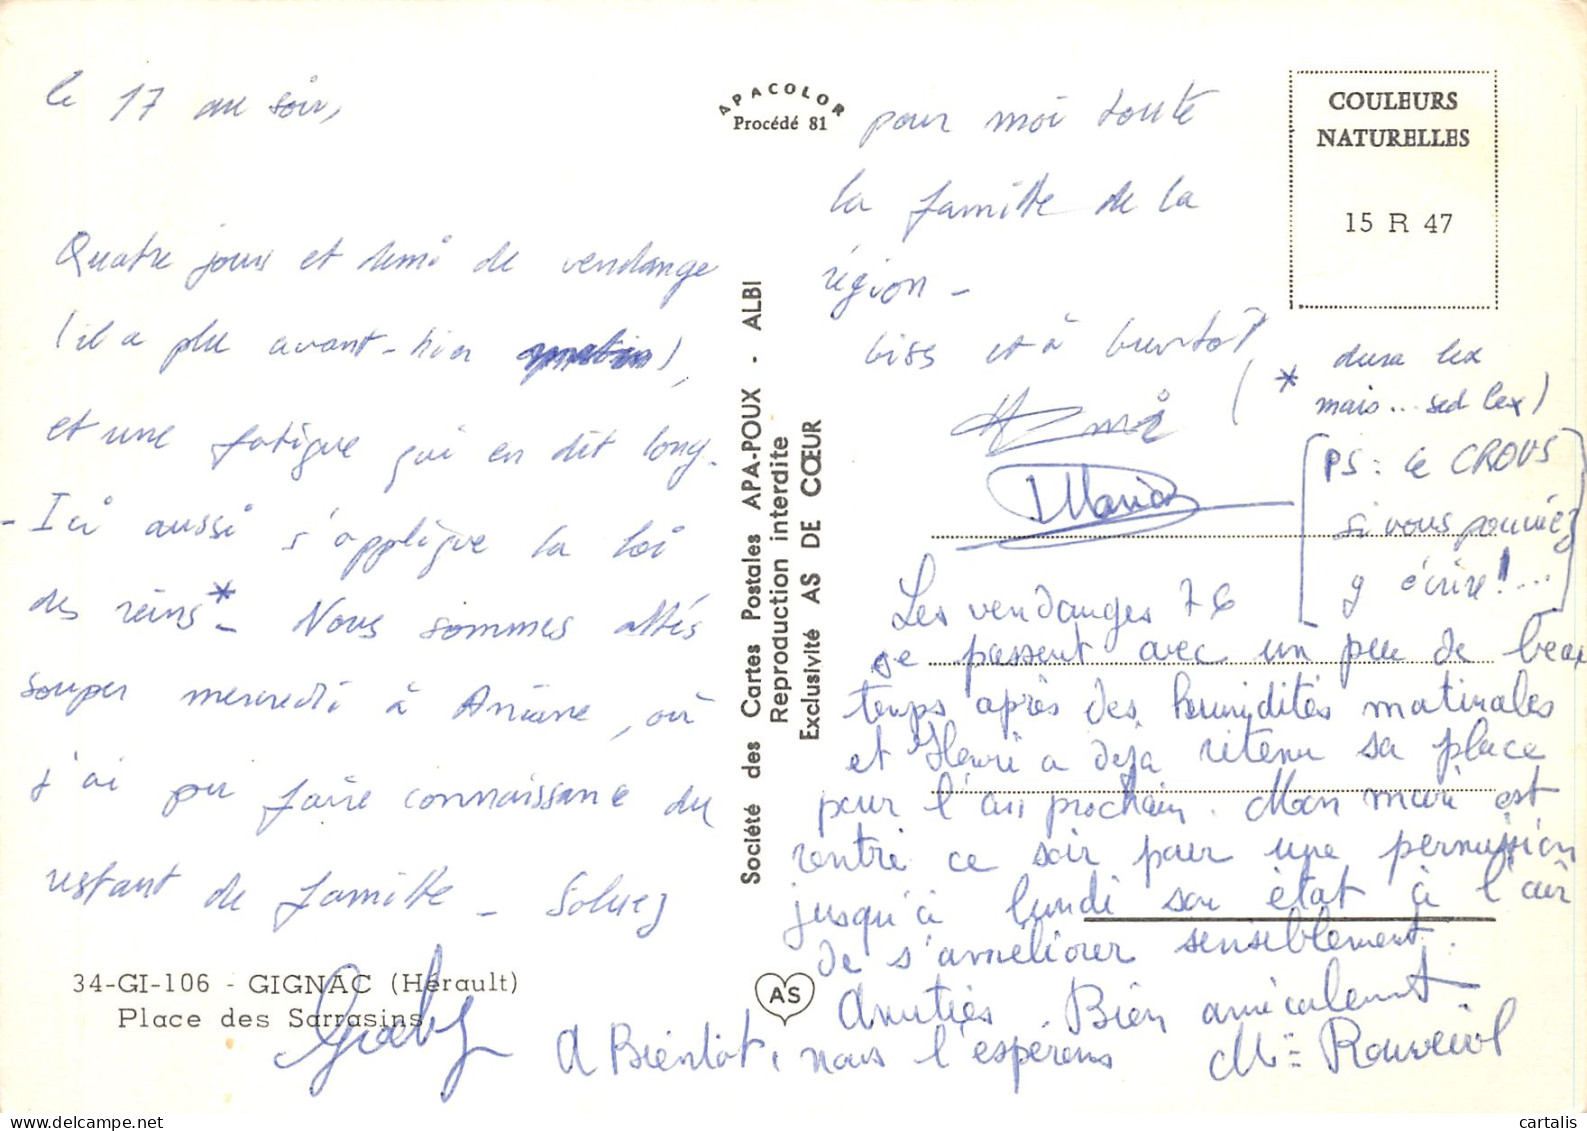 le 17 au soir,
Quatre jours et demi de vendange
(il a plu avant-hier matin),
et une fatigue qui en dit long.
- Ici aussi s'applique la loi
des reins* - Nous sommes allés
souper mercredi à Aniane, où
j'ai pu faire connaissance du
restant de famille - Saluez
pour moi toute
la famille de la
région -
biss et à bientôt,
Henri
(* dura lex
mais... sed lex)
[PS : le CROUS
si vous pouviez
y écrire!...]
Les vendanges 76
se passent avec un peu de beau
temps après des humidités matinales
et Henri a déjà retenu sa place
pour l'an prochain. Mon mari est
rentré ce soir pour une permission
jusqu'à lundi son état à l'air
de s'améliorer sensiblement.
Amitiés. Bien amicalement.
A Bientôt, nous l'espérons
Gaby
APACOLOR
Procédé 81
COULEURS
NATURELLES
15 R 47
Société des Cartes Postales APA-POUX - ALBI
Reproduction interdite
Exclusivité AS DE CŒUR
34-GI-106 - GIGNAC (Hérault)
Place des Sarrasins
AS
cartalis